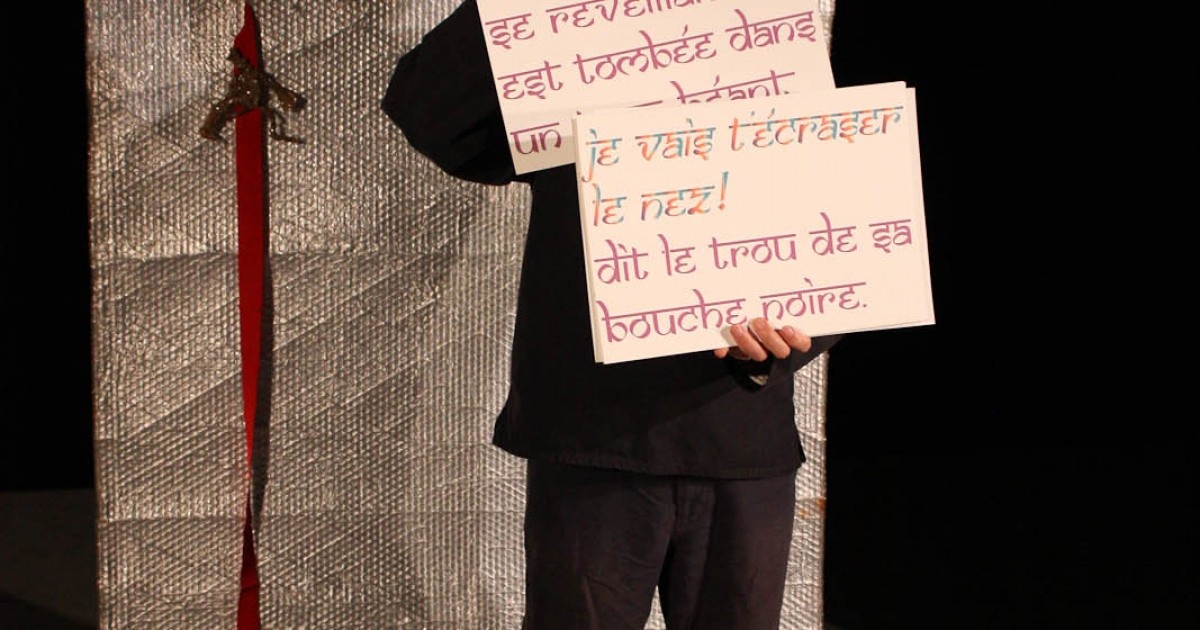 se
est tombée dans
un béant
je vais t'écraser
le nez!
dit le trou de sa
bouche noire.